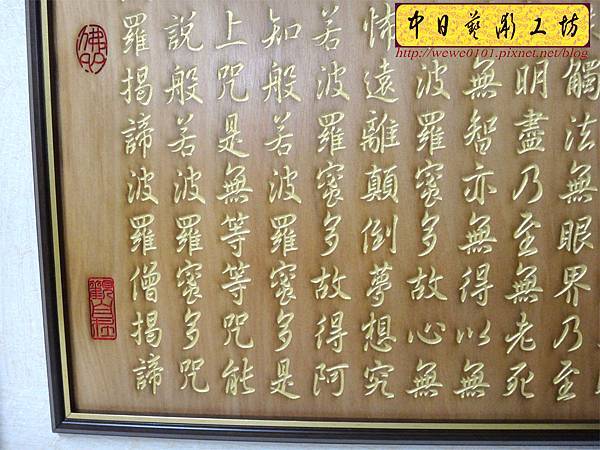 中日藝彫工坊
http://wewe0101.pixnet.net/blog
觸法無眼界乃至
明盡乃至無老死
無智亦無得以無
波羅蜜多故心無
怖遠離顛倒夢想究
若波羅蜜多故得阿
知般若波羅蜜多是
上咒是無等等咒能
說般若波羅蜜多咒
羅揭諦波羅僧揭諦
觀自在